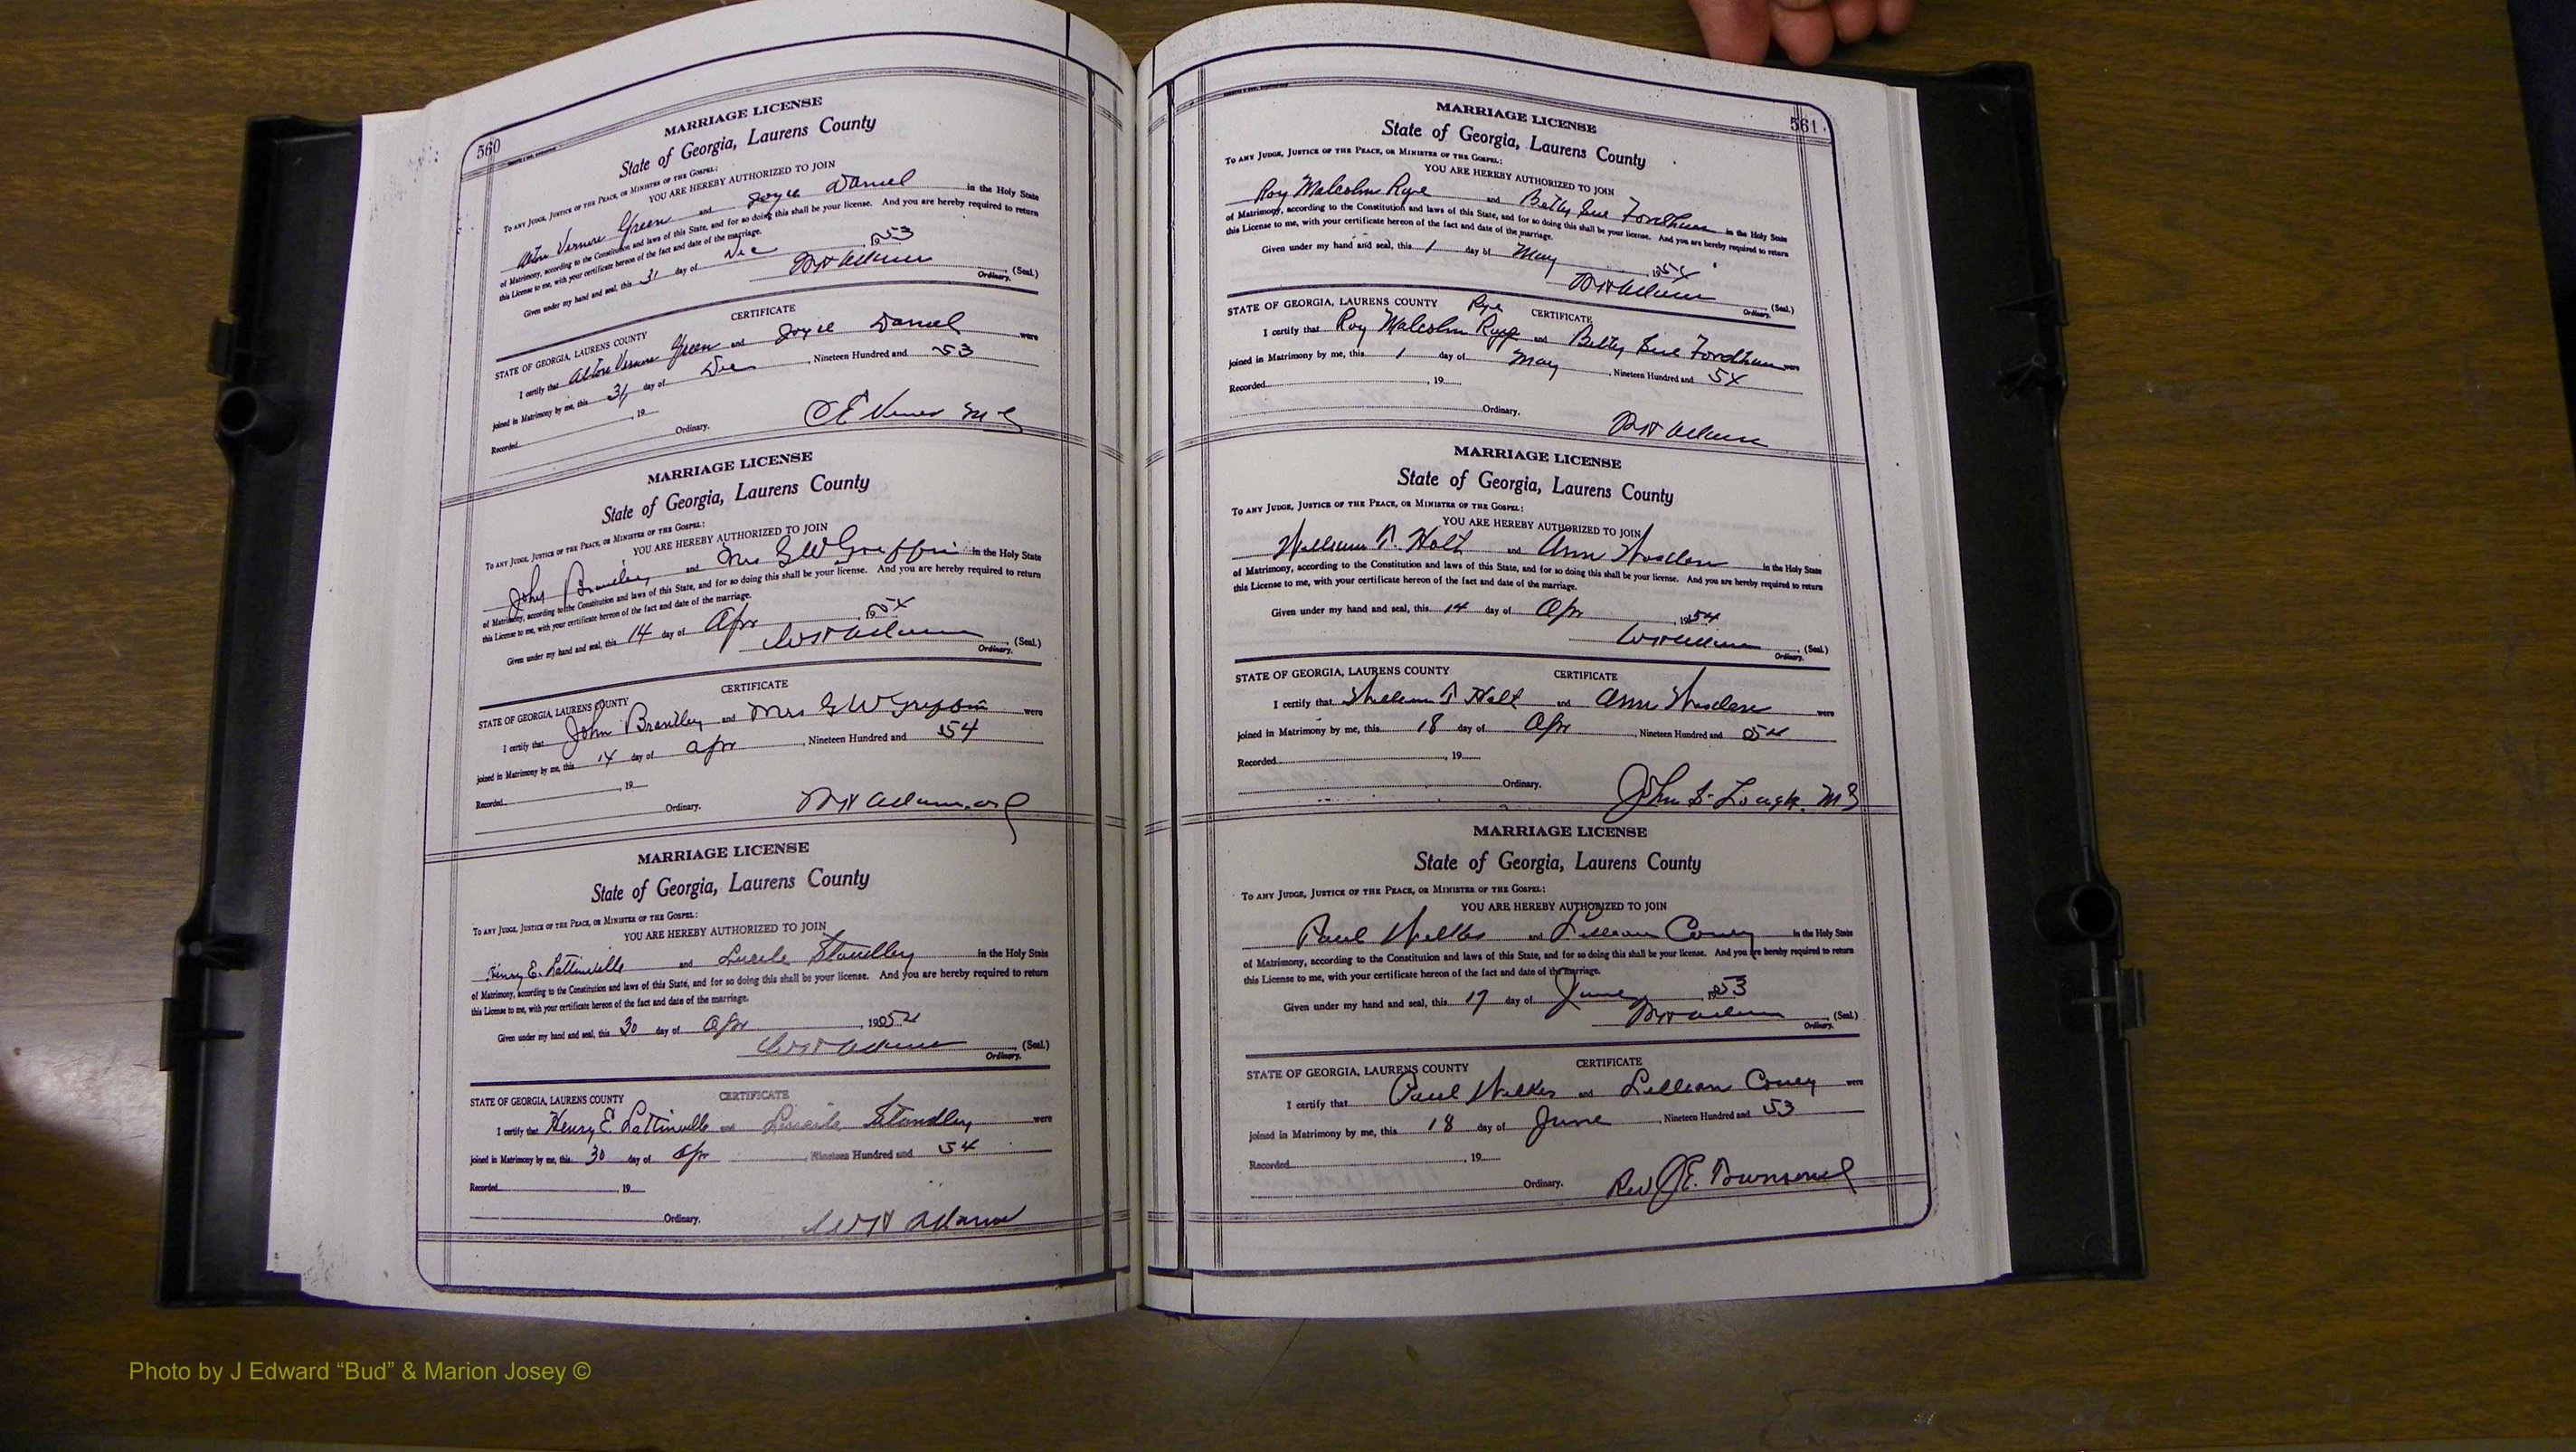 560
MARRIAGE LICENSE
State of Georgia, Laurens County
To ANY JUDGE, JUSTICE OF THE PEACE, OR MINISTER OF THE GOSPEL:
YOU ARE HEREBY AUTHORIZED TO JOIN
Alton Vernon Green and Joyce Daniel in the Holy State
of Matrimony, according to the Constitution and laws of this State, and for so doing this shall be your license. And you are hereby required to return
this License to me, with your certificate hereon of the fact and date of the marriage.
Given under my hand and seal, this 31 day of Dec, 1953
(Seal.)
Ordinary.
CERTIFICATE
STATE OF GEORGIA, LAURENS COUNTY
I certify that Alton Vernon Green and Joyce Daniel were
joined in Matrimony by me, this 31 day of Dec, Nineteen Hundred and 53
Recorded, 19
Ordinary.
MARRIAGE LICENSE
State of Georgia, Laurens County
To ANY JUDGE, JUSTICE OF THE PEACE, OR MINISTER OF THE GOSPEL:
YOU ARE HEREBY AUTHORIZED TO JOIN
John Brantley and Mrs G W Griffin in the Holy State
of Matrimony, according to the Constitution and laws of this State, and for so doing this shall be your license. And you are hereby required to return
this License to me, with your certificate hereon of the fact and date of the marriage.
Given under my hand and seal, this 14 day of Apr, 1954
WH Adams (Seal.)
Ordinary.
CERTIFICATE
STATE OF GEORGIA, LAURENS COUNTY
I certify that John Brantley and Mrs G W Griffin were
joined in Matrimony by me, this 14 day of Apr, Nineteen Hundred and 54
Recorded, 19
Ordinary. WH Adams, ord
MARRIAGE LICENSE
State of Georgia, Laurens County
To ANY JUDGE, JUSTICE OF THE PEACE, OR MINISTER OF THE GOSPEL:
YOU ARE HEREBY AUTHORIZED TO JOIN
Henry E. Lattinville and Lucile Standley in the Holy State
of Matrimony, according to the Constitution and laws of this State, and for so doing this shall be your license. And you are hereby required to return
this License to me, with your certificate hereon of the fact and date of the marriage.
Given under my hand and seal, this 30 day of Apr, 1954
WH Adams (Seal.)
Ordinary.
CERTIFICATE
STATE OF GEORGIA, LAURENS COUNTY
I certify that Henry E. Lattinville and Lucile Standley were
joined in Matrimony by me, this 30 day of Apr, Nineteen Hundred and 54
Recorded, 19
Ordinary. WH Adams
561
MARRIAGE LICENSE
State of Georgia, Laurens County
To ANY JUDGE, JUSTICE OF THE PEACE, OR MINISTER OF THE GOSPEL:
YOU ARE HEREBY AUTHORIZED TO JOIN
Roy Malcolm Rye and Betty Sue Fordham in the Holy State
of Matrimony, according to the Constitution and laws of this State, and for so doing this shall be your license. And you are hereby required to return
this License to me, with your certificate hereon of the fact and date of the marriage.
Given under my hand and seal, this 1 day of May, 1954
WH Adams (Seal.)
Ordinary.
STATE OF GEORGIA, LAURENS COUNTY Rye CERTIFICATE
I certify that Roy Malcolm Rye and Betty Sue Fordham were
joined in Matrimony by me, this 1 day of May, Nineteen Hundred and 54
Recorded, 19
Ordinary.
WH Adams
MARRIAGE LICENSE
State of Georgia, Laurens County
To ANY JUDGE, JUSTICE OF THE PEACE, OR MINISTER OF THE GOSPEL:
YOU ARE HEREBY AUTHORIZED TO JOIN
William T. Holt and Ann Warden in the Holy State
of Matrimony, according to the Constitution and laws of this State, and for so doing this shall be your license. And you are hereby required to return
this License to me, with your certificate hereon of the fact and date of the marriage.
Given under my hand and seal, this 14 day of Apr, 1954
WH Adams (Seal.)
Ordinary.
STATE OF GEORGIA, LAURENS COUNTY CERTIFICATE
I certify that William T Holt and Ann were
joined in Matrimony by me, this 18 day of Apr, Nineteen Hundred and 54
Recorded, 19
Ordinary.
John S. Lough. MG
MARRIAGE LICENSE
State of Georgia, Laurens County
To ANY JUDGE, JUSTICE OF THE PEACE, OR MINISTER OF THE GOSPEL:
YOU ARE HEREBY AUTHORIZED TO JOIN
Paul Wilkes and Lillian Coney in the Holy State
of Matrimony, according to the Constitution and laws of this State, and for so doing this shall be your license. And you are hereby required to return
this License to me, with your certificate hereon of the fact and date of the marriage.
Given under my hand and seal, this 17 day of June, 1953
WH Adams (Seal.)
Ordinary.
STATE OF GEORGIA, LAURENS COUNTY CERTIFICATE
I certify that Paul Wilkes and Lillian Coney were
joined in Matrimony by me, this 18 day of June, Nineteen Hundred and 53
Recorded, 19
Ordinary. Rev J.E. Townsend
Photo by J Edward “Bud” & Marion Josey ©